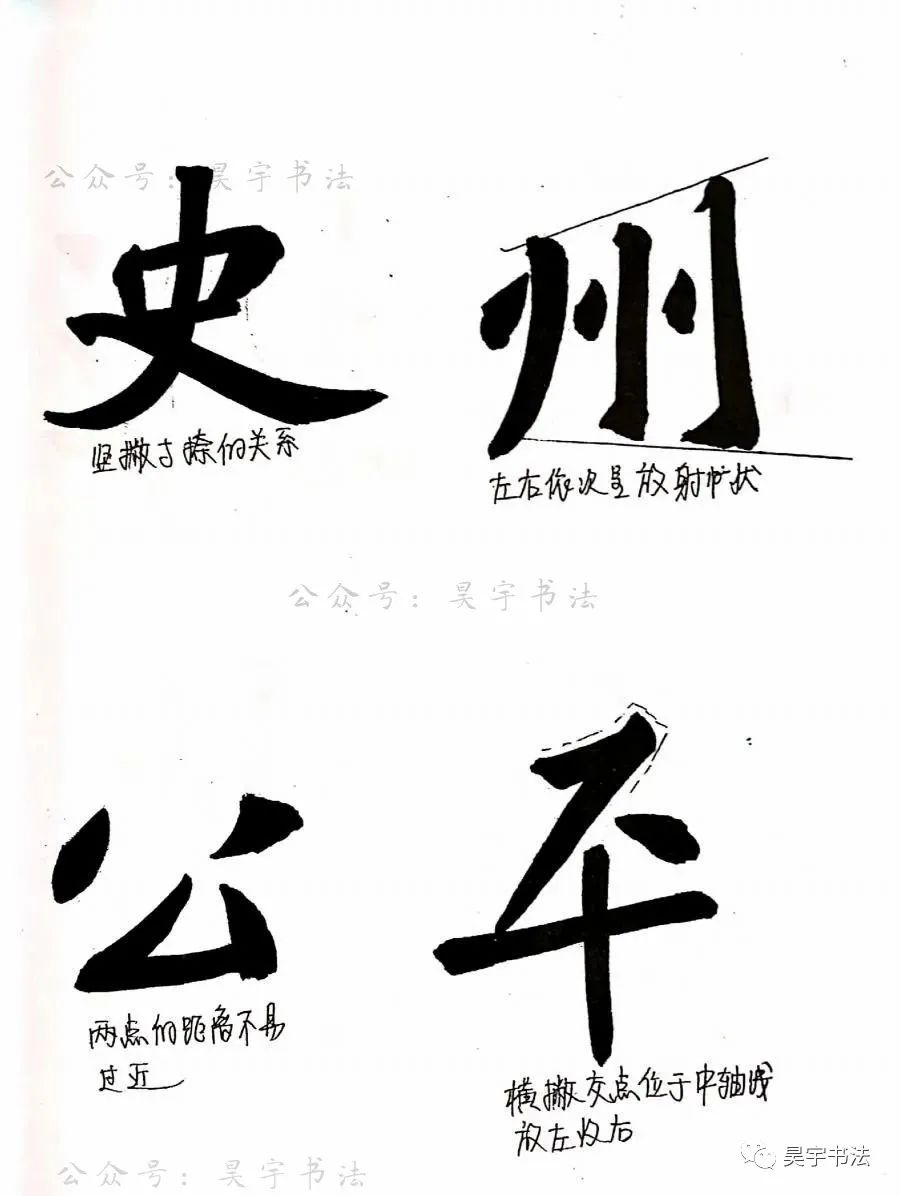 公众号：昊宇书法
史
州
竖撇与捺的关系
左右依次呈放射状
公众号：昊宇书法
公
平
两点的距离不易
过近
横撇交点位于中轴线
放左收右
公众号：昊宇书法
昊宇书法